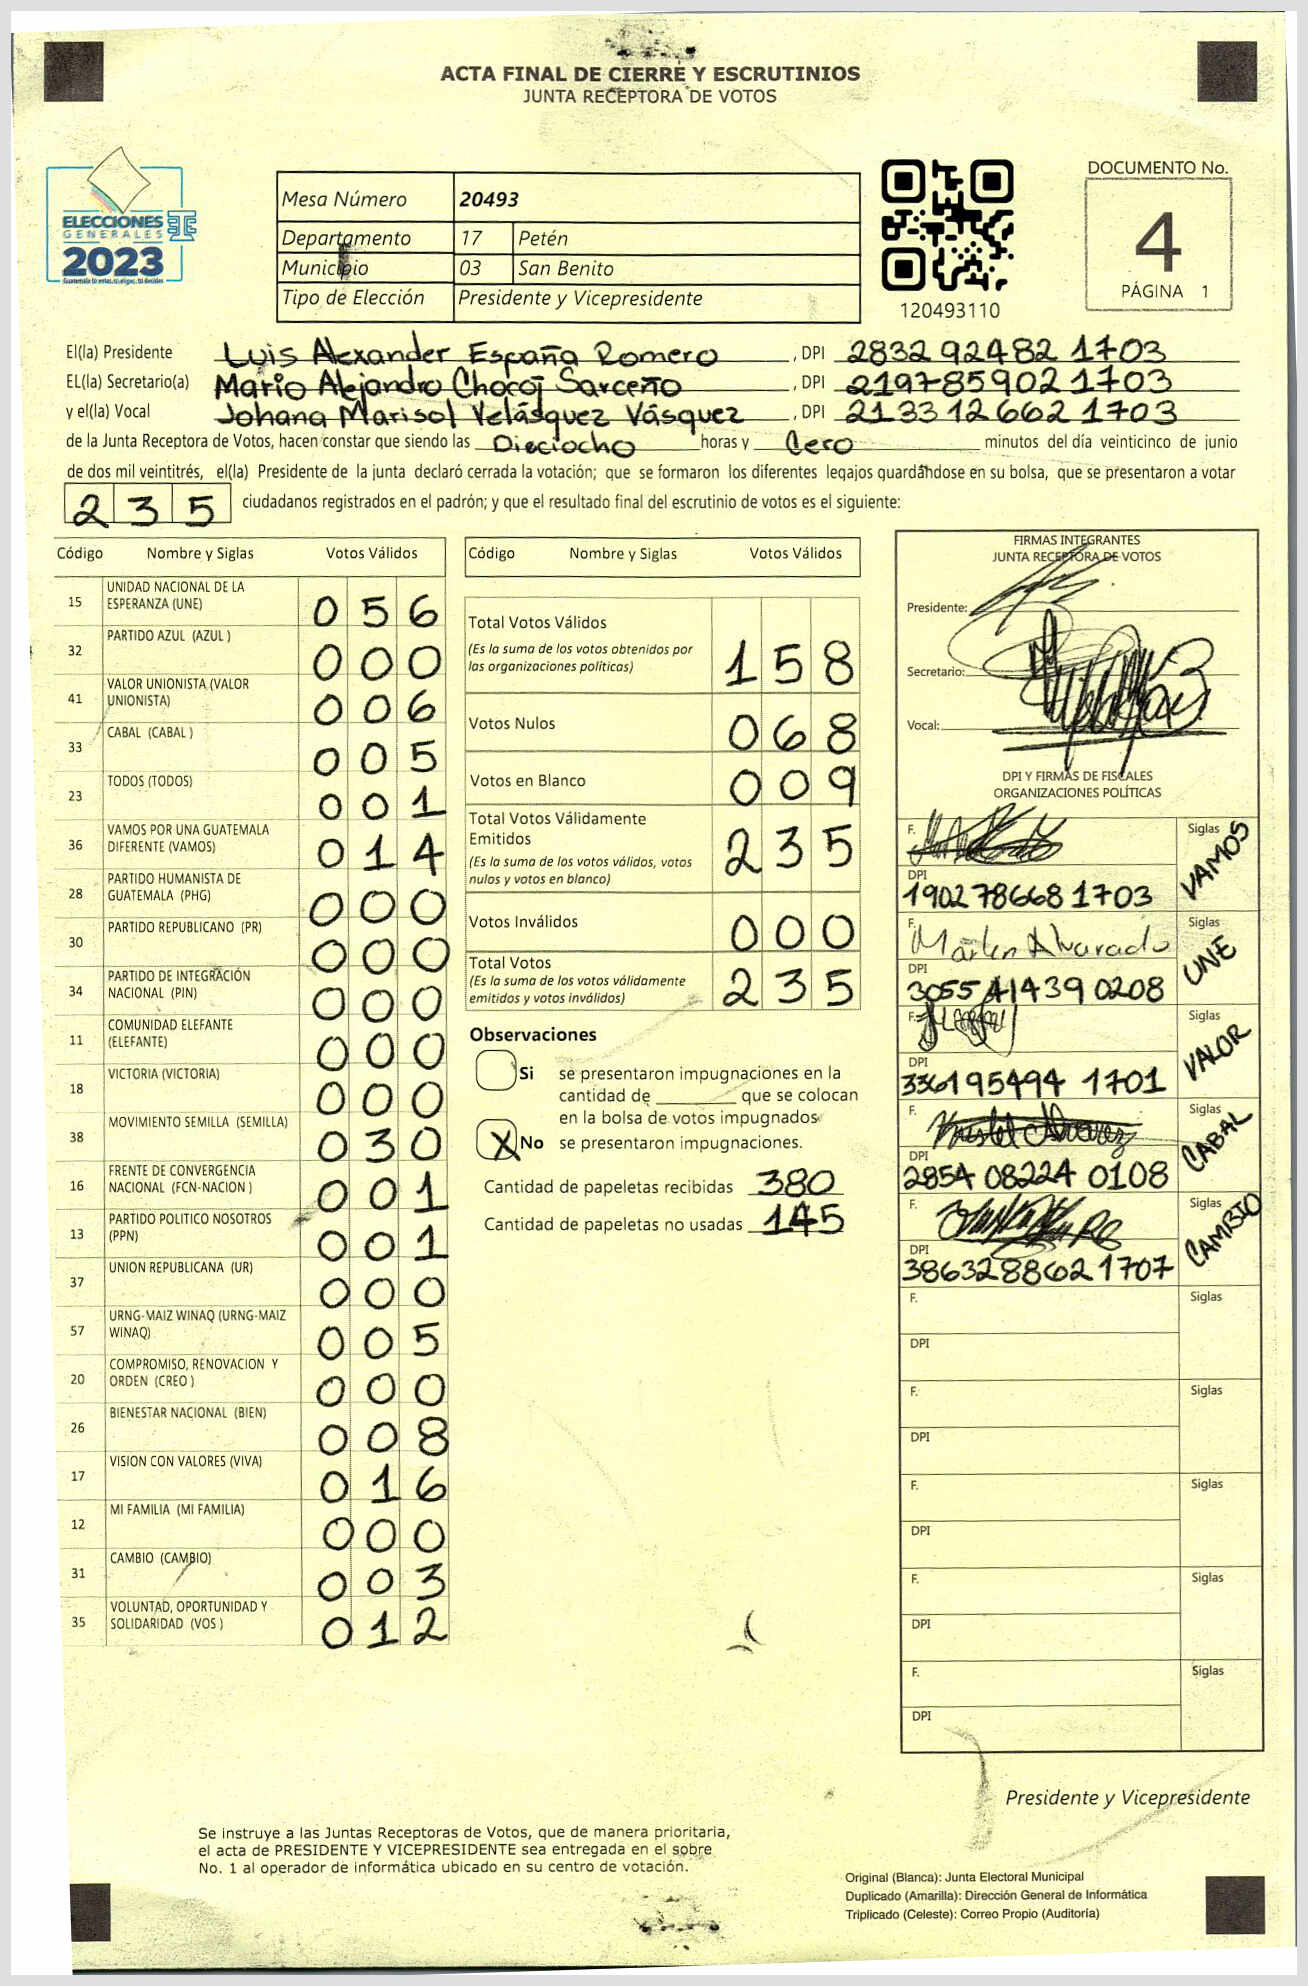 ACTA FINAL DE CIERRE Y ESCRUTINIOS
JUNTA RECEPTORA DE VOTOS
ELECCIONES
GENERALES
2023
Mesa Número 20493
Departamento 17 Petén
Municipio 03 San Benito
Tipo de Elección Presidente y Vicepresidente
120493110
DOCUMENTO No.
4
PÁGINA 1
El(la) Presidente Luis Alexander España Romero , DPI 2832 92482 1703
EL(la) Secretario(a) Mario Alejandro Chocoj Sarceño , DPI 2197859021703
y el(la) Vocal Johana Marisol Velásquez Vásquez , DPI 2133 12662 1703
de la Junta Receptora de Votos, hacen constar que siendo las Dieciocho horas y Cero minutos del día veinticinco de junio
de dos mil veintitrés, el(la) Presidente de la junta declaró cerrada la votación; que se formaron los diferentes legajos guardándose en su bolsa, que se presentaron a votar
235 ciudadanos registrados en el padrón; y que el resultado final del escrutinio de votos es el siguiente:
Código Nombre y Siglas Votos Válidos
15 UNIDAD NACIONAL DE LA
ESPERANZA (UNE) 056
32 PARTIDO AZUL (AZUL ) 000
41 VALOR UNIONISTA (VALOR
UNIONISTA) 006
33 CABAL (CABAL ) 005
23 TODOS (TODOS) 001
36 VAMOS POR UNA GUATEMALA
DIFERENTE (VAMOS) 014
28 PARTIDO HUMANISTA DE
GUATEMALA (PHG) 000
30 PARTIDO REPUBLICANO (PR) 000
34 PARTIDO DE INTEGRACIÓN
NACIONAL (PIN) 000
11 COMUNIDAD ELEFANTE
(ELEFANTE) 000
18 VICTORIA (VICTORIA) 000
38 MOVIMIENTO SEMILLA (SEMILLA) 030
16 FRENTE DE CONVERGENCIA
NACIONAL (FCN-NACION ) 001
13 PARTIDO POLITICO NOSOTROS
(PPN) 001
37 UNION REPUBLICANA (UR) 000
57 URNG-MAIZ WINAQ (URNG-MAIZ
WINAQ) 005
20 COMPROMISO, RENOVACION Y
ORDEN (CREO ) 000
26 BIENESTAR NACIONAL (BIEN) 008
17 VISION CON VALORES (VIVA) 016
12 MI FAMILIA (MI FAMILIA) 000
31 CAMBIO (CAMBIO) 003
35 VOLUNTAD, OPORTUNIDAD Y
SOLIDARIDAD (VOS ) 012
Código Nombre y Siglas Votos Válidos
Total Votos Válidos
(Es la suma de los votos obtenidos por
las organizaciones políticas) 158
Votos Nulos 068
Votos en Blanco 009
Total Votos Válidamente
Emitidos 235
(Es la suma de los votos válidos, votos
nulos y votos en blanco)
Votos Inválidos 000
Total Votos
(Es la suma de los votos válidamente
emitidos y votos inválidos) 235
Observaciones
Si se presentaron impugnaciones en la
cantidad de ________ que se colocan
en la bolsa de votos impugnados
X No se presentaron impugnaciones.
Cantidad de papeletas recibidas 380
Cantidad de papeletas no usadas 145
FIRMAS INTEGRANTES
JUNTA RECEPTORA DE VOTOS
Presidente:
Secretario:
Vocal:
DPI Y FIRMAS DE FISCALES
ORGANIZACIONES POLÍTICAS
F. Siglas VAMOS
DPI
1902786681703
F. Marlen Alvarado Siglas UNE
DPI
3055 41439 0208
F. Siglas VALOR
DPI
336195494 1701
F. Kristel Alvarez Siglas CABAL
DPI
2854 08224 0108
F. Siglas CAMBIO
DPI
3863288621707
F. Siglas
DPI
F. Siglas
DPI
F. Siglas
DPI
F. Siglas
DPI
F. Siglas
DPI
Presidente y Vicepresidente
Se instruye a las Juntas Receptoras de Votos, que de manera prioritaria,
el acta de PRESIDENTE Y VICEPRESIDENTE sea entregada en el sobre
No. 1 al operador de informática ubicado en su centro de votación.
Original (Blanca): Junta Electoral Municipal
Duplicado (Amarilla): Dirección General de Informática
Triplicado (Celeste): Correo Propio (Auditoría)